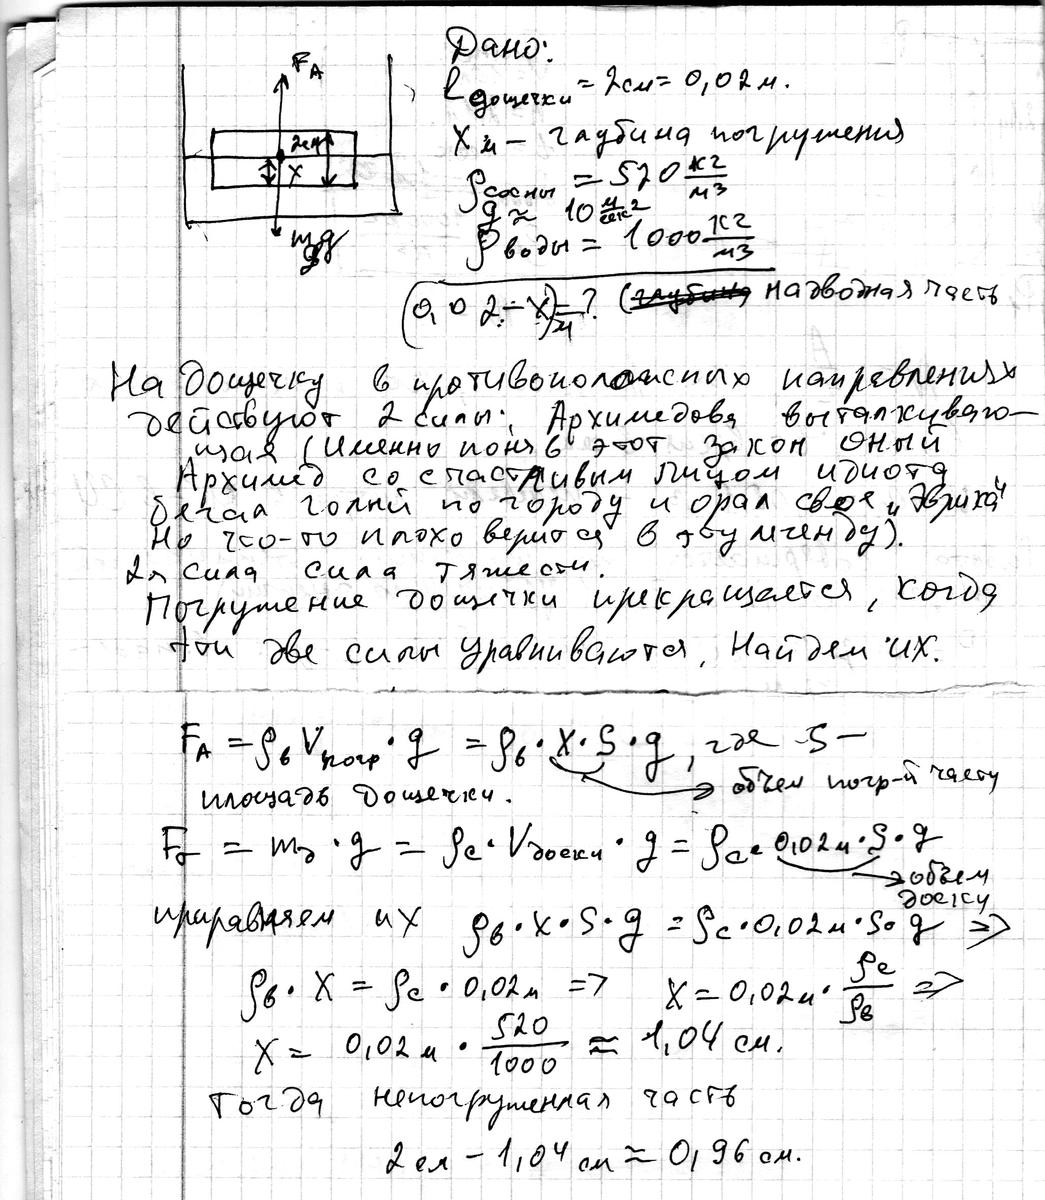 F_A
2см
X
m_д g
Дано:
l дощечки = 2см = 0,02 м.
X м – глубина погружения
ρ сосны = 520 кг/м3
g ≈ 10 м/сек2
ρ воды = 1000 кг/м3
(0,02 – X) м = ? (надводная часть
На дощечку в противоположных направлениях
действуют 2 силы: Архимедова выталкиваю-
щая (Именно поняв этот закон оный
Архимед со счастливым лицом идиота
бегал голый по городу и орал свое "Эврика"
Но что-то плохо верится в эту легенду).
2я сила сила тяжести.
Погружение дощечки прекращается, когда
эти две силы уравниваются, Найдем их.
F_A = ρв Vпогр · g = ρв · X · S · g, где S –
площадь дощечки.
объем погр-й части
Fт = mд · g = ρс · Vдоски · g = ρс · 0,02м · S · g
объем
доски
приравняем их ρв · X · S · g = ρс · 0,02м · S · g =>
ρв · X = ρс · 0,02м => X = 0,02м · ρс/ρв =>
X = 0,02м · 520/1000 ≈ 1,04 см.
Тогда непогруженная часть
2см – 1,04 см ≈ 0,96 см.